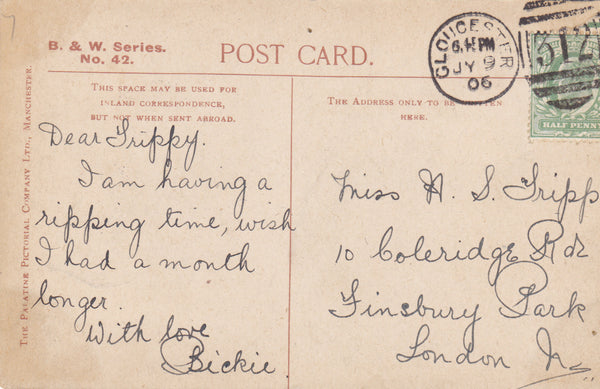 7
B. & W. Series.
No. 42.
POST CARD.
GLOUCESTER
6.45PM
JY 9
06
312
HALF PENNY
THIS SPACE MAY BE USED FOR
INLAND CORRESPONDENCE,
BUT NOT WHEN SENT ABROAD.
THE ADDRESS ONLY TO BE WRITTEN
HERE.
THE PALATINE PICTORIAL COMPANY LTD., MANCHESTER.
Dear Trippy.
I am having a
ripping time, wish
I had a month
longer.
With love
Bickie.
Miss H. S. Tripp
10 Coleridge Rd
Finsbury Park
London N.